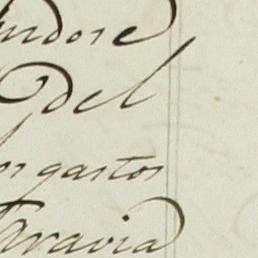 ndose
del
os gastos
aravia